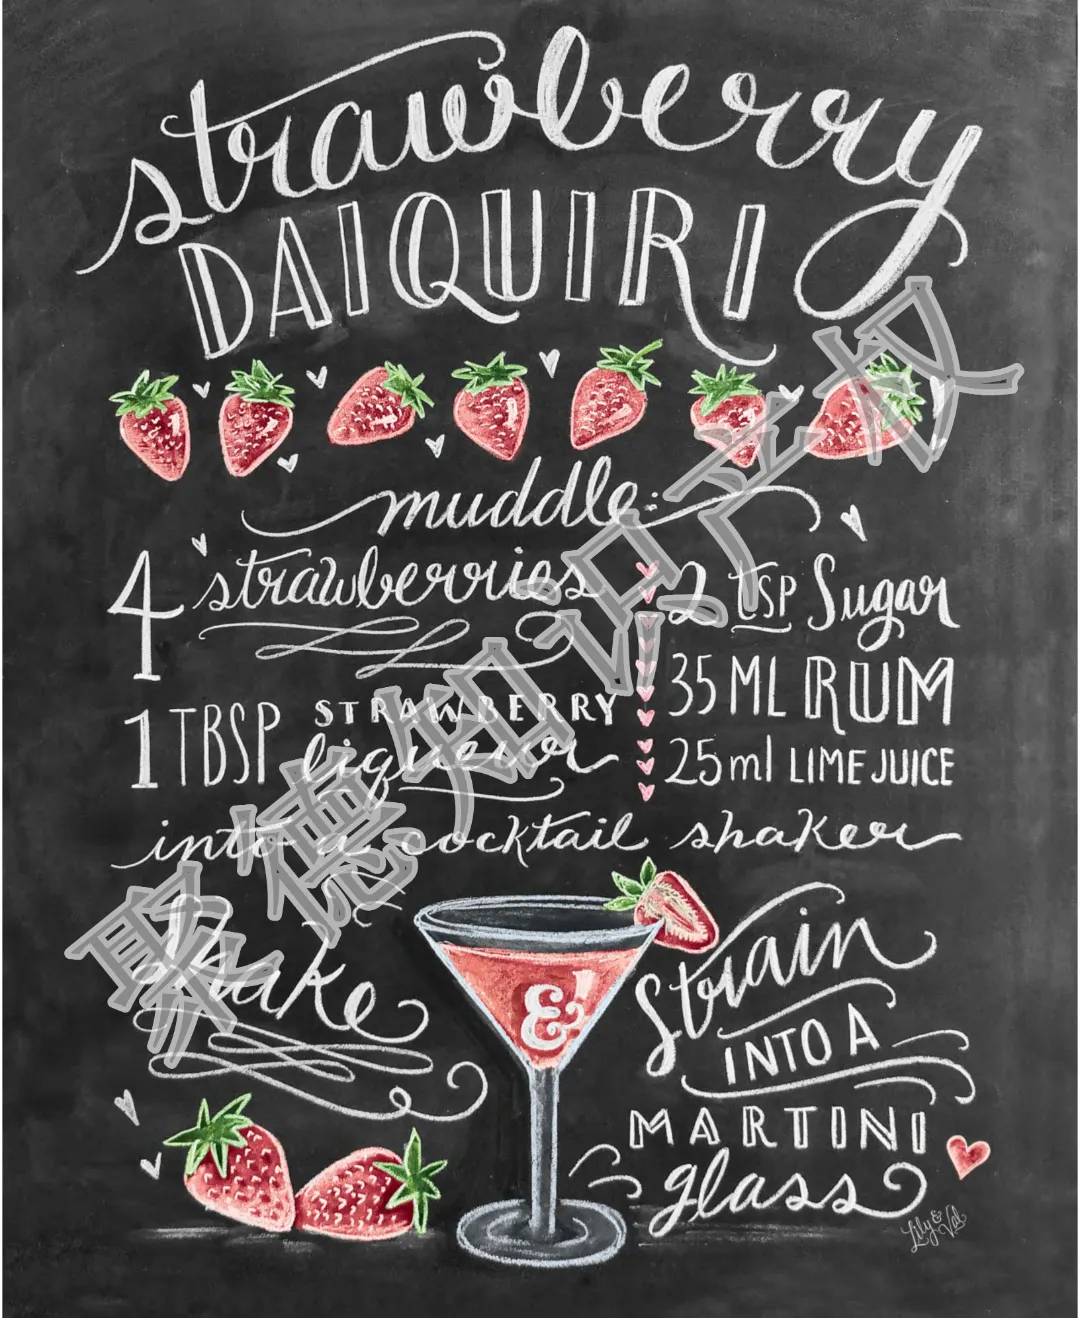 strawberry
DAIQUIRI
muddle:
4 strawberries
1 TBSP STRAWBERRY liqueur
2 TSP Sugar
35 ML RUM
25 ml LIME JUICE
into a cocktail shaker
Shake
&
Strain
INTO A
MARTINI
glass
Lily & Val
聚德知识产权